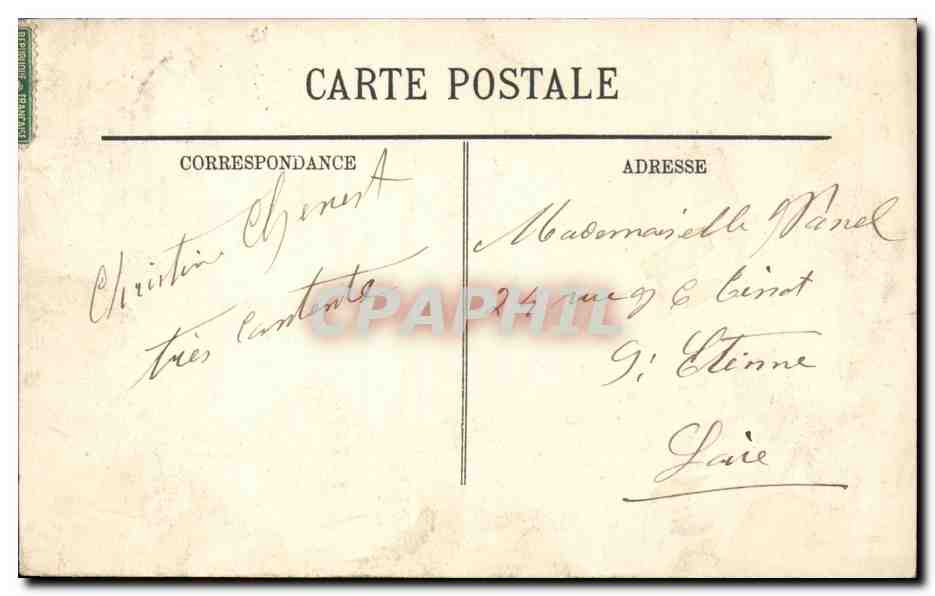 REPUBLIQUE FRANÇAISE
CARTE POSTALE
CORRESPONDANCE
ADRESSE
Christine Chenest
très contente
Mademoiselle Panel
24 rue
St Etienne
Loire
CPAPHIL